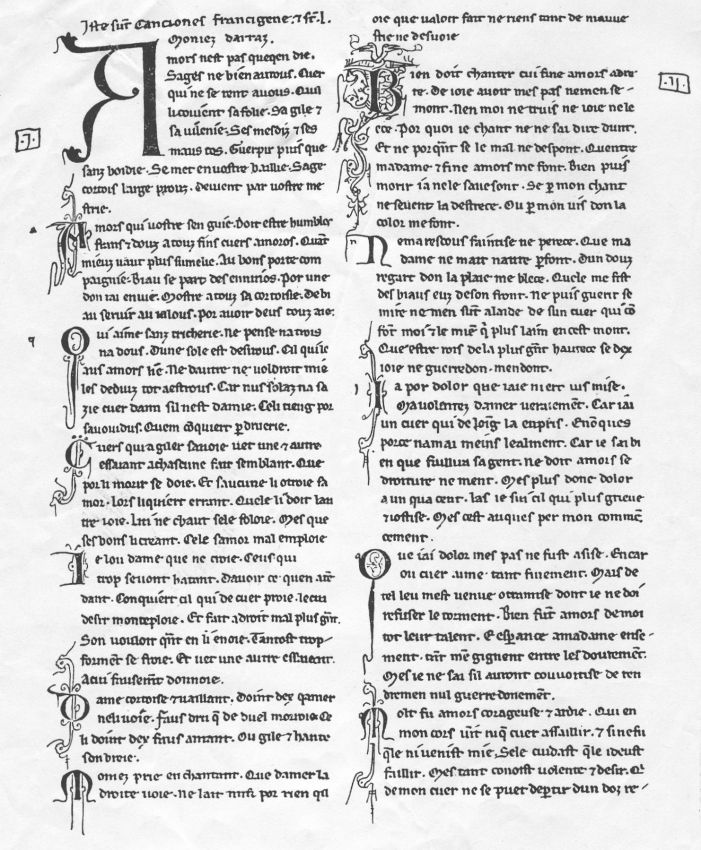 Iste sunt Canciones francigene. 7 st. l.
Moniez darraz.
Amors nest pas que qen die.
Sages ne bien aurous. Cuer
qui ne se rent a vous. Qui
li covient sa folie. Sa gile 7
sa vilenie. Ses mesdiz 7 ses
maus tos. Guerpir puis que
sanz boidie. Se met en vostre baillie. Sage
cortois large prouz. Devient par vostre me
strie.
Amors qui vostre sen guie. Doit estre humbles
frans 7 douz a touz fins cuers amoros. Quar
mieuz vaut plus sumelie. Au bons porte com
paignie. Biau se part des ennuios. Por une
don iai envie. Mostre a touz sa cortoisie. De bi
au servir au ialous. Por avoir deus touz aie.
Qui aime sanz tricherie. Ne pense na trois
na dous. Dune sole est desirous. Cil qui le
aus amors lie. Ne dautre ne voldroit mie
les deduiz tot a estrous. Car nus solaz na sa
zie cuer dami sil nest damie. Celi tieng por
savouidus. Quem coquiert p druerie.
Cuers qui a giler savoie vet une 7 autre
essaiant a chascune fait semblant. Que
por li morir se doie. Et saucune li otroie sa
mor. Lors li quiert errant. Quele li doit lau
tre ioie. Lui ne chaut sele foloie. Mes que
ses bons li creant. Cele samor mal emploie
Je lou dame que ne croie. Ceus qui
trop sevont hatant. Davoir ce quen att
dant. Conquiert cil qui de cuer proie. Le cui
desir monteploie. Et fait a droit mal plus gnt.
Son voisloit qnt en li enoie. Tantost trop
forment se sroie. Et vet une autre essaiant.
A cui fausemt donnoie.
Dame cortoise 7 vaillant. Doint dex qamer
neli voie. Faus dru q de duel morroie. Ce
li doint dex faus amant. Ou gile 7 hante
son droie.
Moniez prie en chantant. Que damer la
droite voie. Ne lait nus por rien qil
oie que valoir fait ne riens tant de mauve
stie ne desvoie
.I.
.II.
Bien doit chanter cui fine amors adre
ce. De ioie avoir mes pas nemen se-
mont. Nen moi ne truis ne ioie ne le
ece. Por quoi ie chant ne ne sai dire dunt.
Et ne porqnt se le mal ne despont. Quentre
madame 7 fine amors me font. Bien puis
morir ia nele savesont. Se p mon chant
ne sevent la destrece. Ou p mon vis don la
color me font.
Ne ma rescous faintise ne perece. Que ma
dame ne mait navre pfont. Dun douz
regart don la plaie me blece. Quele me fist
des biaus euz deson front. Ne puis guerir se
mire ne men sunt alaide de sun cuer qui co
fort moi 7 le mien q plus laim en cest mont.
Que estre rois de la plus gnt hautece se dex
ioie ne guerredon. mendont.
Ja por dolor que iaie niert vis mise.
Ma volentez damer veraiement. Car iai
un cuer qui de loig la enpris. En oques
porte namai meins lealment. Car ie sai bi
en que faillira sa gent. Ne doit amors se
droiture ne ment. Mes plus donc dolor
a un qua cent. Las ie sui cil qui plus grieve
7 iostise. Mes cest auques per mon comme
cement.
Que iai dolor mes pas ne fust asise. En car
ou cuer aime tant finement. Mais de
tel leu mest venue otramise dont ie ne doi
refuser le torment. Bien funt amors de moi
tot leur talent. Esperance a madame ense-
ment. Tant me gignent entre les doutement.
Mes ie ne sai sil auront covoitise de ren
dremen nul guerredonement.
Molt fu amors corageuse 7 ardie. Qui en
mon cors vint ruq cuer assaillir. 7 si ne fu
qle ni venist mie. Sele cuidast qle i deust
faillir. Mes tant conoist volente 7 desir. Q
de mon cuer ne se puet departir dun doz re-